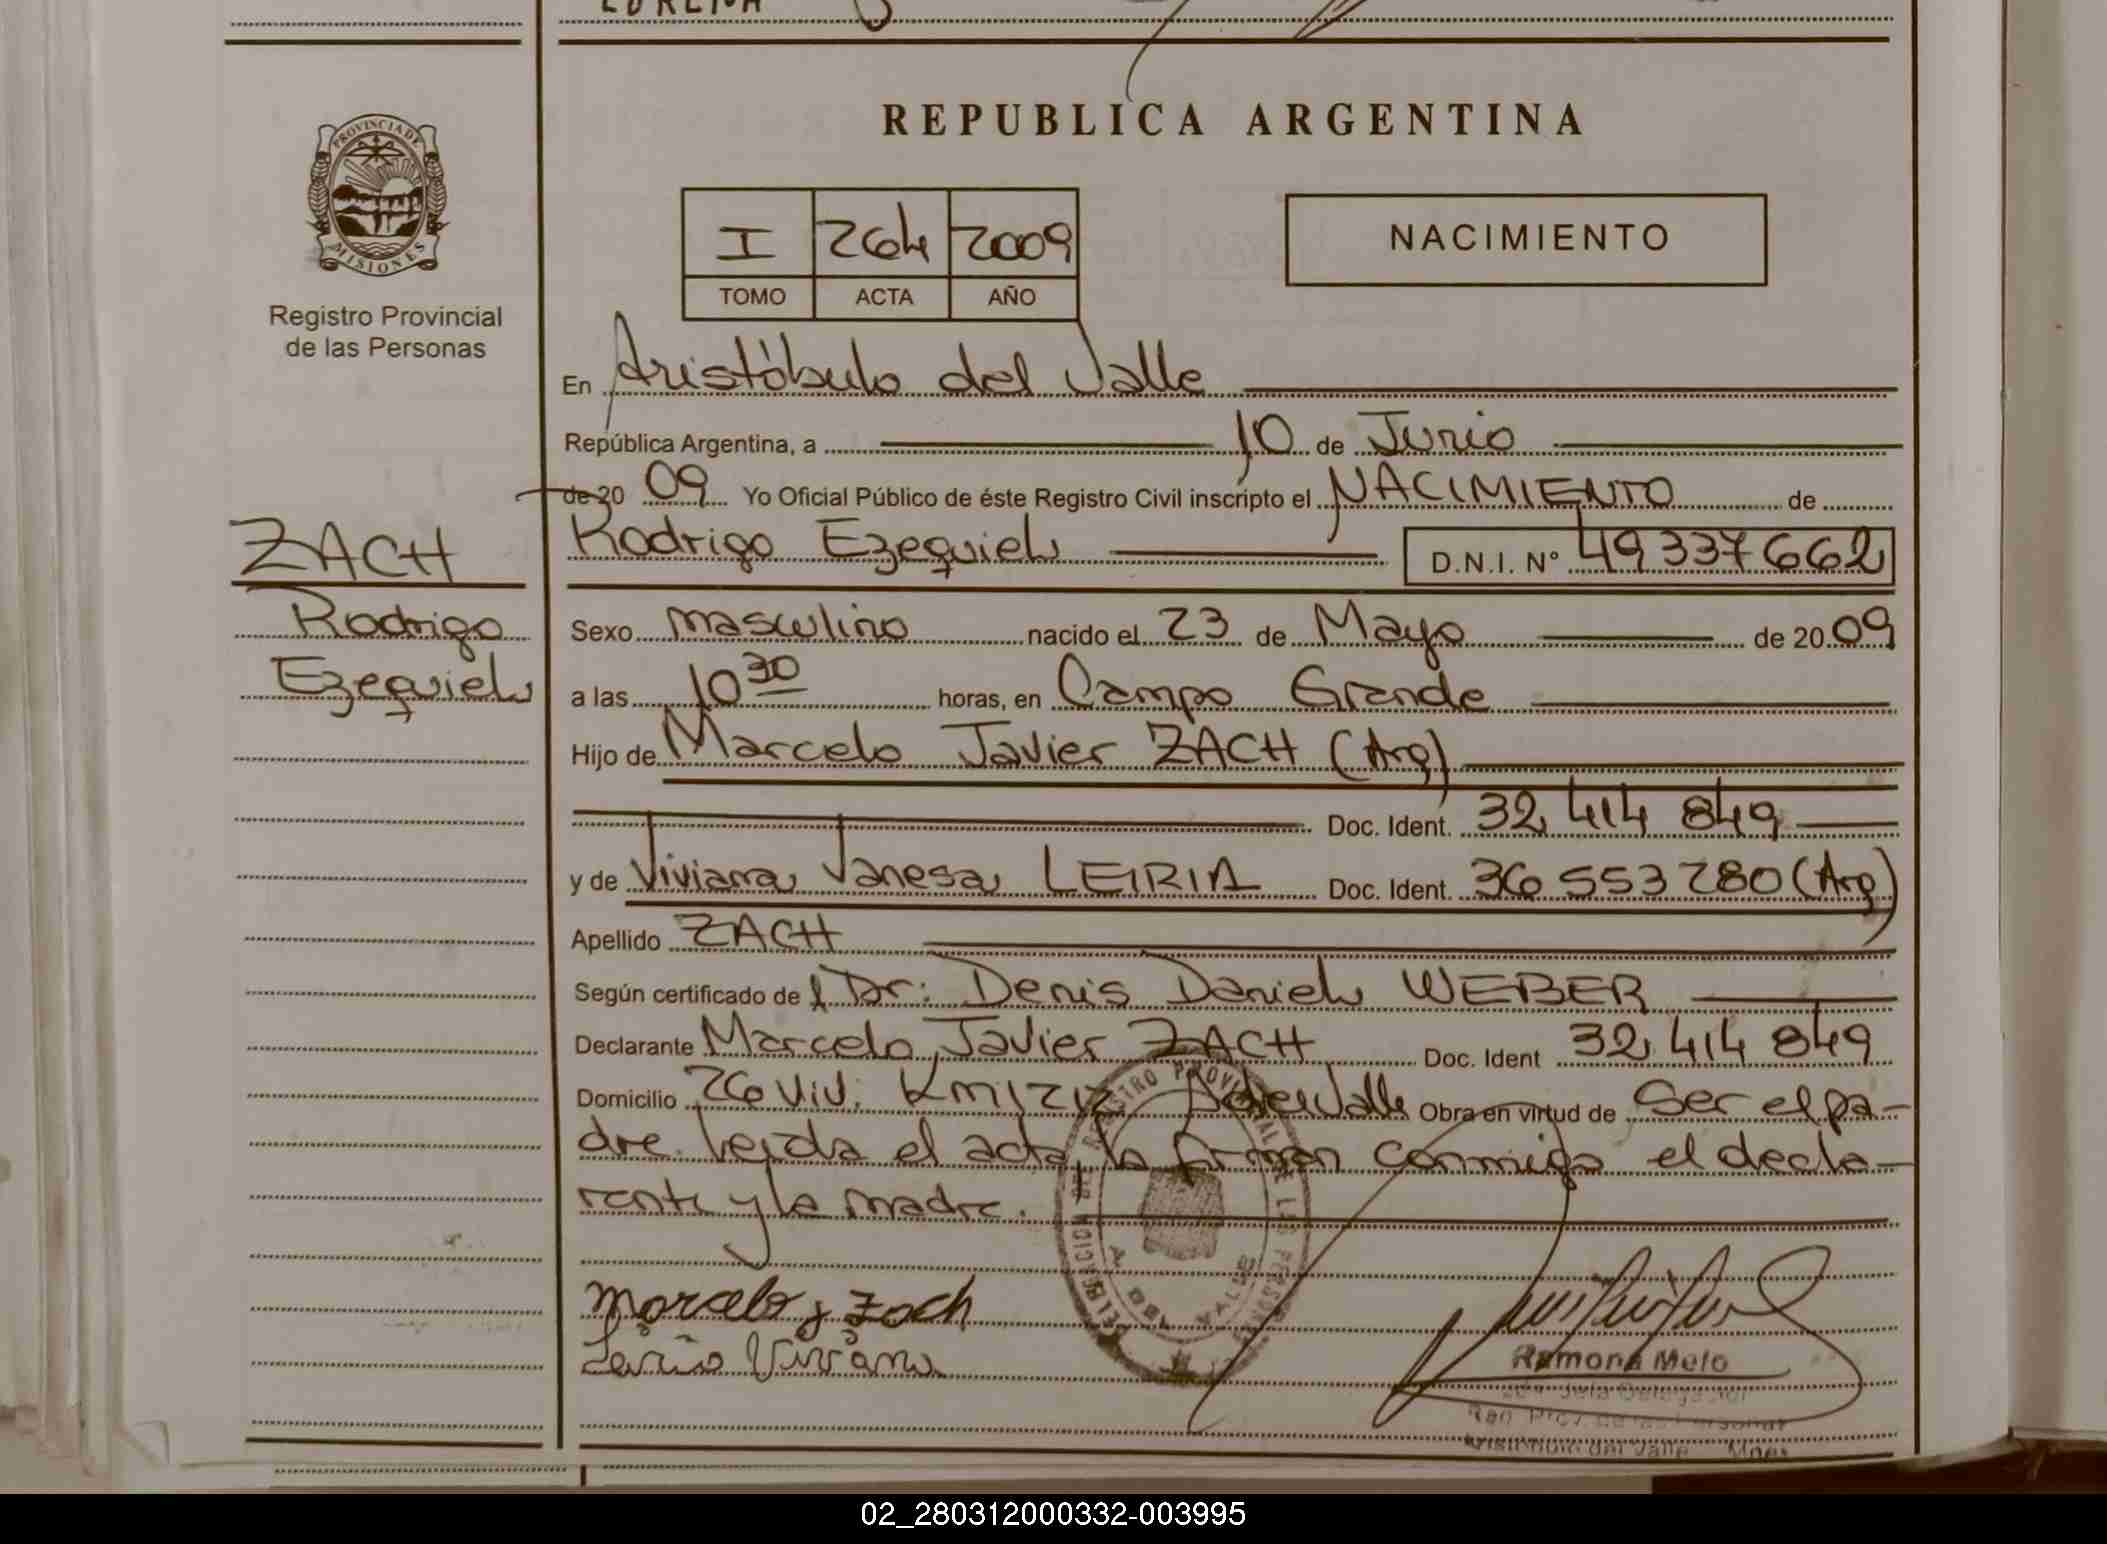 REPUBLICA ARGENTINA
PROVINCIA DE
MISIONES
Registro Provincial
de las Personas
I 264 2009
TOMO ACTA AÑO
NACIMIENTO
En Aristóbulo del Valle
República Argentina, a 10 de Junio
de 20 09 Yo Oficial Público de éste Registro Civil inscripto el NACIMIENTO de
ZACH
Rodrigo
Ezequiel
Rodrigo Ezequiel D.N.I. Nº 49337662
Sexo masculino nacido el 23 de Mayo de 20 09
a las 10 30 horas, en Campo Grande
Hijo de Marcelo Javier ZACH (Arg)
Doc. Ident. 32 414 849
y de Viviana Vanesa LEIRIA Doc. Ident. 36 553 280 (Arg)
Apellido ZACH
Según certificado de Dr: Denis Daniel WEBER
Declarante Marcelo Javier ZACH Doc. Ident 32 414 849
Domicilio 26 Viv: Km Valle Obra en virtud de Ser el pa-
dre. leida el acta, la firman conmigo el decla-
rante y la madre.
REGISTRO PROVINCIAL DE LAS PERSONAS
DELEGACION
A. DEL VALLE
Marcelo J Zach
Leiria Viviana
Ramona Melo
Reg. Prov. de las Personas
Aristobulo del Valle Mnes
02_280312000332-003995